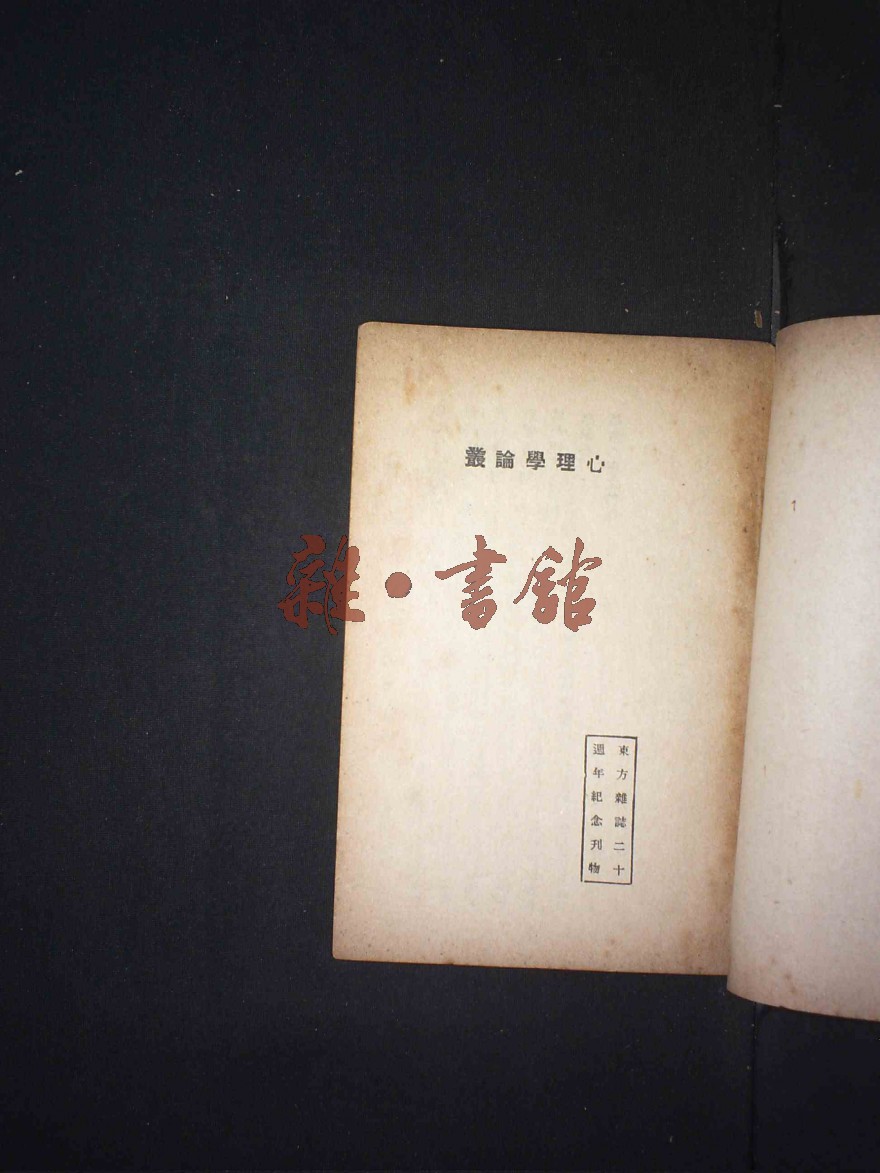 心理學論叢
雜·書館
東方雜誌二十
週年紀念刊物